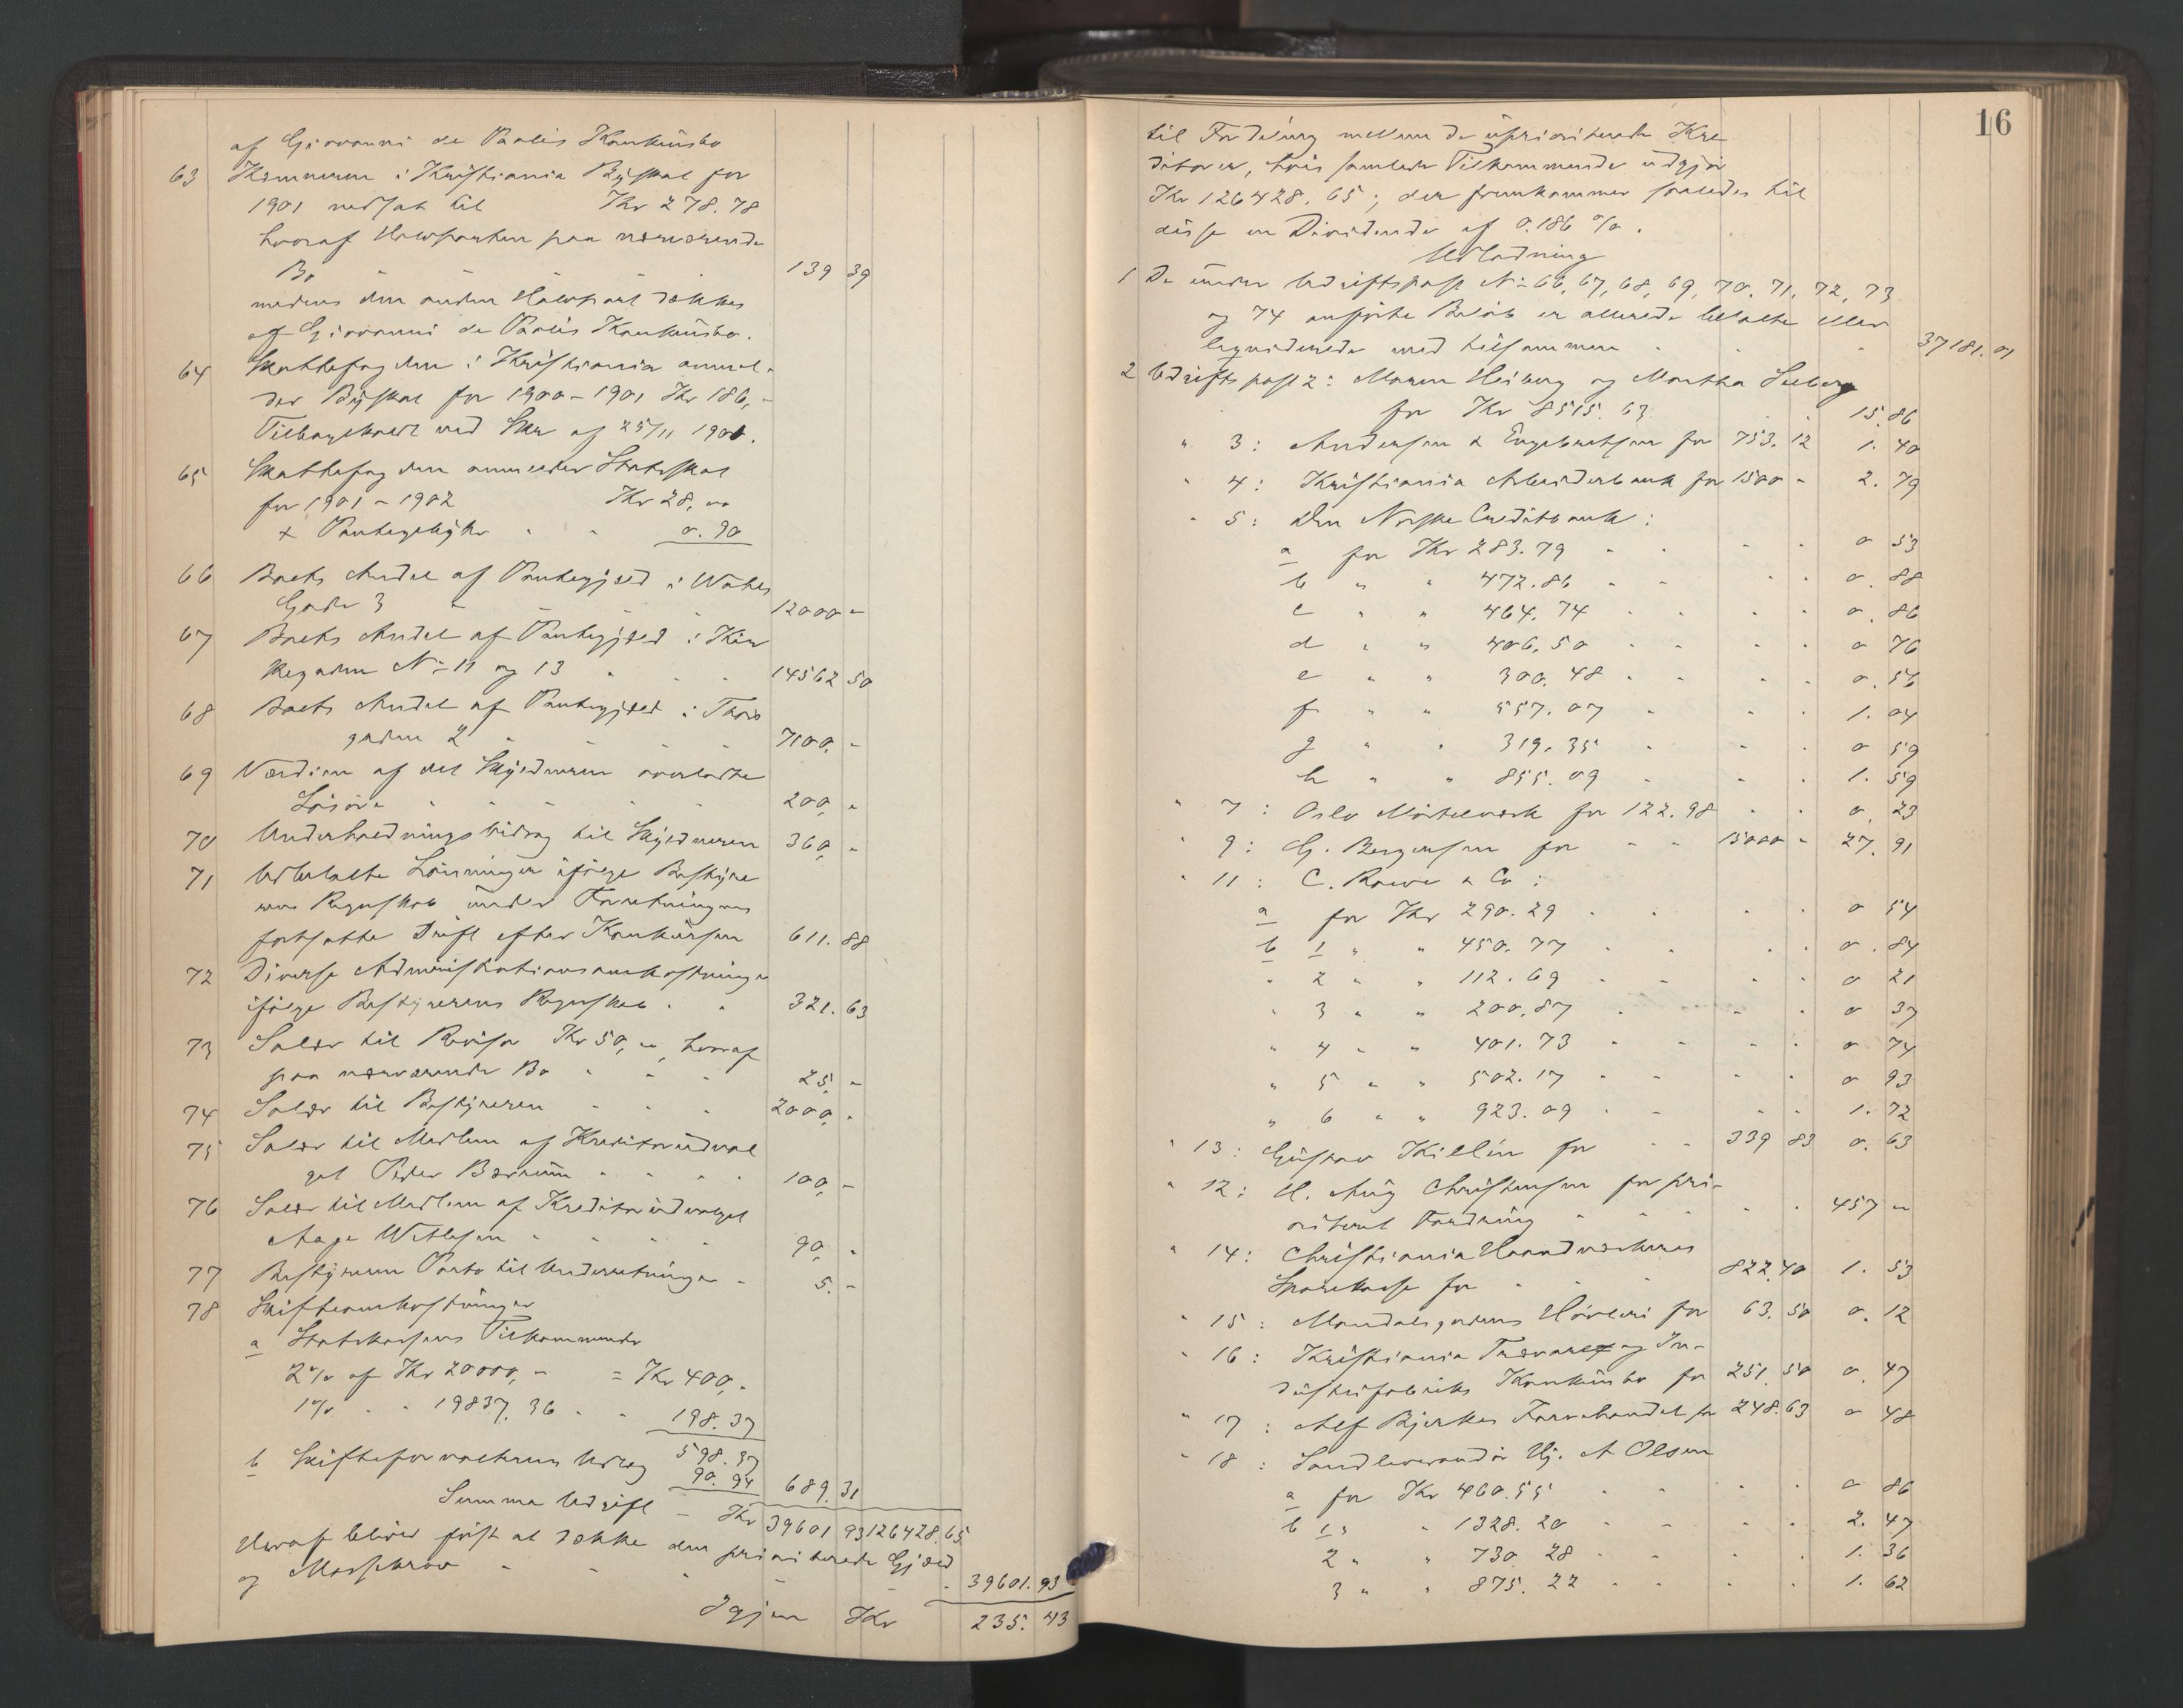 af Giovanni de Paolis Konkursbo
63 Kæmneren i Kristiania Byskat for
1901 nedsat til Kr 278.78
hvoraf Halvparten paa nærværende
Bo 139 39
medens den anden Halvpart dækkes
af Giovanni de Paolis Konkursbo.
64 Skattefogden i Kristiania anmel-
der Byskat for 1900-1901 Kr 186,-
Tilbagekaldt ved Skr af 25/11 1901.
65 Skattefogden anmelder Statsskat
for 1901-1902 Kr 28,00
+ Pantegebyhr 0.90
66 Boets Andel af Pantegjæld i Wahls
Gade 3 12000 -
67 Boets Andel af Pantegjæld i Kir
kegaden No 11 og 13 14562 50
68 Boets Andel af Pantegjæld i Thors
gaden 2 7100, -
69 Værdien af det Skyldneren overladte
Løsøre 200, -
70 Underholdningsbidrag til Skyldneren 360, -
71 Udbetalte Lønninger ifølge Bestyre
rens Regnskab under Forretningens
fortsatte Drift efter Konkursen 611. 88
72 Diverse Administrationsomkostninger
ifølge Bestyrerens Regnskab 321. 63
73 Salær til Revisor Kr 50,-, hvoraf
paa nærværende Bo 25, -
74 Salær til Bestyreren 2000, -
75 Salær til Medlem af Kreditorudval
get Peder Bærum 100, -
76 Salær til Medlem af Kreditorudvalget
Aage Wetlesen 90, -
77 Bestyreren Porto til Underretninger 5. -
78 Skifteomkostninger
a Statskassens Tilkommende
2% af Kr 20000,- = Kr 400,-
1% " " 19837.36 " " 198.37
598.37
b Skifteforvalterens Udlæg 90.94 689. 31
Summa Udgift - Kr 39601 93 126428.65
Heraf bliver først at dække den prioriterede Gjæld
og Massekrav 39601.93
Igjen Kr 235. 43
16
til Fordeling mellem de uprioriterede Kre
ditorer, hvis samlede Tilkommende udgjør
Kr 126428.65; der fremkommer saaledes til
disse en Dividende af 0.186 %.
Udlodning
1 De under Udgiftspost No 66, 67, 68, 69, 70, 71, 72, 73
og 74 anførte Beløb er allerede betalte eller
liquiderede med tilsammen 37181.01
2 Udgiftspost 2: Maren Heiberg og Martha Seeberg
for Kr 8515.63 15.86
" 3: Andersen & Engebretsen for 753.12 1. 40
" 4: Kristiania Arbeiderbank for 1500 - 2. 79
" 5: Den Norske Creditbank:
a for Kr 283.79 0 53
b " " 472.86 0. 88
c " " 464.74 0. 86
d " " 406.50 0 76
e " " 300.48 0. 56
f " " 557.07 1. 04
g " " 319.35 0 59
h " " 855.09 1. 59
" 7: Oslo Mørtelværk for 122.98 0 23
" 9: G. Bergersen for 15000 - 27. 91
" 11: C. Rowe & Co:
a for Kr 290.29 0 54
b 1 " " 450.77 0. 84
" 2 " " 112.69 0 21
" 3 " " 200.87 0 37
" 4 " " 401.73 0 74
" 5 " " 502.17 0 93
" 6 " " 923.09 1. 72
" 13: Gustav Killin for 339 83 0. 63
" 12: H. Aug Christensen for pri-
oriteret Fordring 457 -
" 14: Christiania Haandværkeres
Sparekasse for 822.40 1. 53
" 15: Mandalsgadens Høvleri for 63.50 0. 12
" 16: Kristiania Trævare og In-
dustrifabriks Konkursbo for 251.50 0. 47
" 17: Alf Bjerkes Farvehandel for 248.63 0 48
" 18: Sandleverandør Hj. A Olsen
a for Kr 460.55 0 86
b 1 " " 1328.20 2. 47
2 " " 730.28 1. 36
3 " " 875.22 1. 62